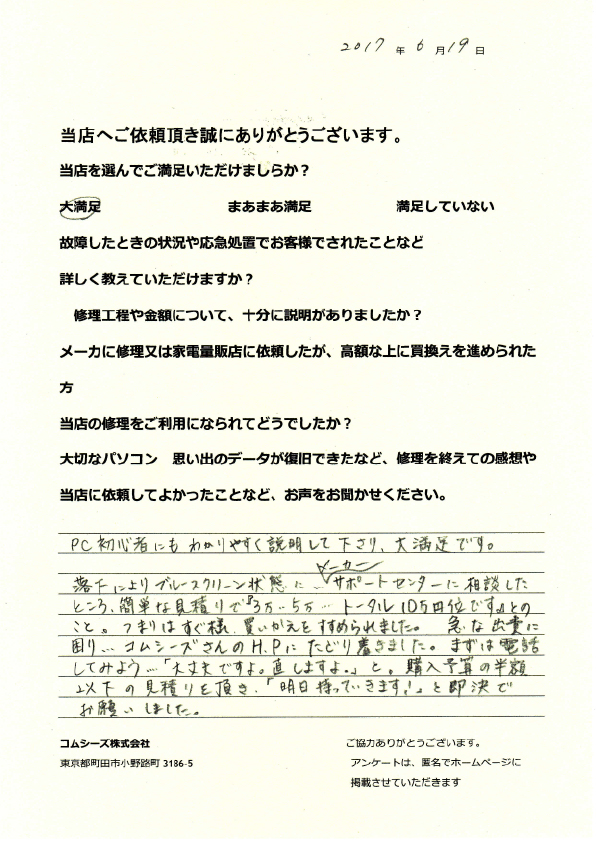 2017 年 6 月 19 日
当店へご依頼頂き誠にありがとうございます。
当店を選んでご満足いただけましらか？
大満足 まあまあ満足 満足していない
故障したときの状況や応急処置でお客様でされたことなど
詳しく教えていただけますか？
修理工程や金額について、十分に説明がありましたか？
メーカに修理又は家電量販店に依頼したが、高額な上に買換えを進められた
方
当店の修理をご利用になられてどうでしたか？
大切なパソコン　思い出のデータが復旧できたなど、修理を終えての感想や
当店に依頼してよかったことなど、お声をお聞かせください。
PC初心者にもわかりやすく説明して下さり、大満足です。
メーカー
落下によりブルースクリーン状態に… サポートセンターに相談した
ところ、簡単な見積りで『3万…5万… トータル10万円位です』との
こと。つまりはすぐ様、買いかえをすすめられました。 急な出費に
困り… コムシーズさんのH.Pにたどり着きました。まずは電話
してみよう…「大丈夫ですよ。直しますよ。」と。購入予算の半額
以下の見積りを頂き、「明日持っていきます！」と即決で
お願いしました。
コムシーズ株式会社 ご協力ありがとうございます。
東京都町田市小野路町 3186-5 アンケートは、匿名でホームページに
掲載させていただきます